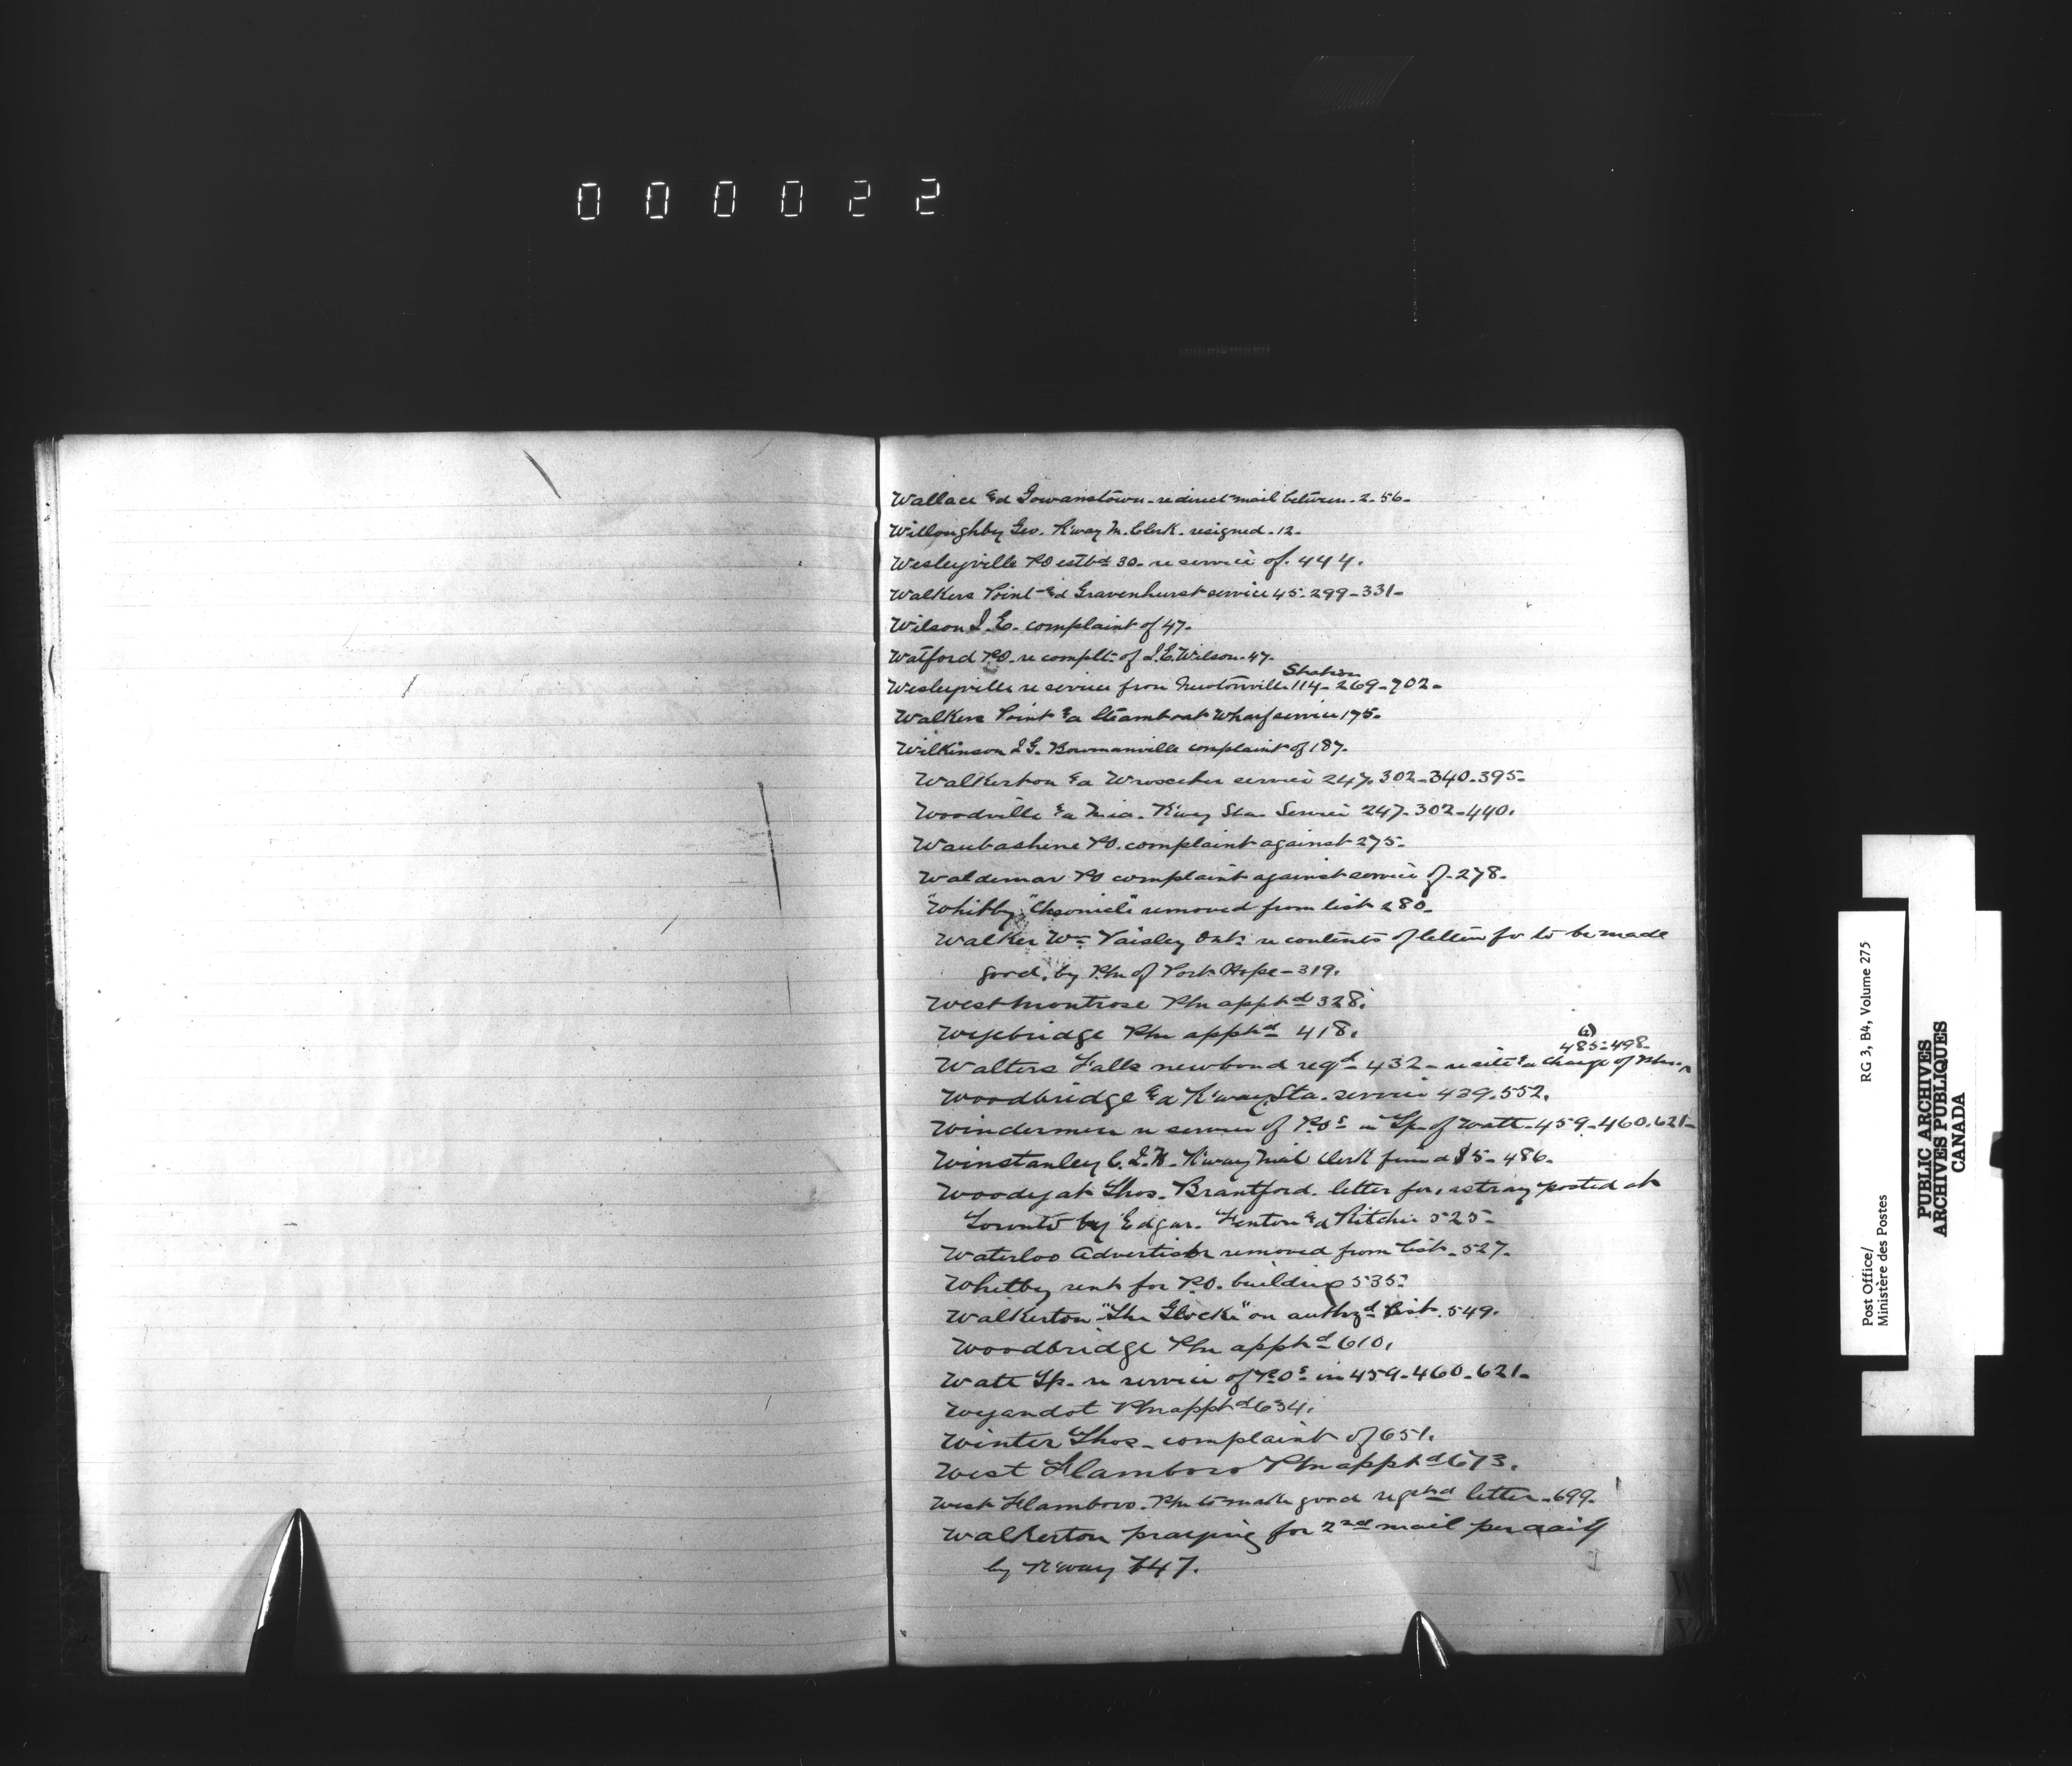 000022
Wallace &d Gowanstown - re direct mail between - 2. 56 -
Willoughby Geo. R'way M. Clerk. resigned - 12 -
Wesleyville PO estbd 30 - re service of. 444.
Walkers Point &d Gravenhurst service 45 - 299 - 331 -
Wilson J. E. complaint of 47.
Watford P.O. re complt. of J. E. Wilson - 47 -
Station
Wesleyville re service from Newtonville 114 - 269 - 702 -
Walkers Point &a Steamboat Wharf service 175 -
Wilkinson J G. Bowmanville complaint of 187 -
Walkerton &a Wroxeter service 247. 302 - 340 - 395 -
Woodville &a Mid. R'way Sta. Service 247 - 302 - 440.
Waubashene PO. complaint against 275 -
Waldemar PO complaint against service of - 278 -
"Whitby" "Chronicle" removed from list 280 -
Walker Wm Paisley Ont. re contents of letter for to be made
good, by Pm of Port Hope - 319.
West Montrose Pm apptd 328.
Wyebridge Pm apptd 418.
485 - 498 -
Walters Falls new bond reqd - 432 - re site &a charge of
Woodbridge &d R'way Sta. service 439. 552.
Windermere re service of POs in Tp. of Watt - 459 - 460. 621 -
Winstanley C. J. H. R'way Mail Clerk fined $5 - 486 -
Woodyatt Thos. Brantford. letter for, astray posted at
Toronto by Edgar. Fenton &d Ritchie 525 -
Waterloo Advertiser removed from list - 527.
Whitby rent for P.O. building 535 -
Walkerton "The Glocke" on authzd list. 549.
Woodbridge Pm apptd 610.
Watt Tp. re service of POs in 459 - 460 - 621 -
Wyandot Pm apptd 634.
Winter Thos - complaint of 651.
West Flamboro Pm apptd 673.
West Flamboro. Pm to make good regstrd letter - 699.
Walkerton praying for 2nd mail per daily
by R'way 747.
W
Y
Post Office/ RG 3, B4, Volume 275
Ministère des Postes
PUBLIC ARCHIVES
ARCHIVES PUBLIQUES
CANADA